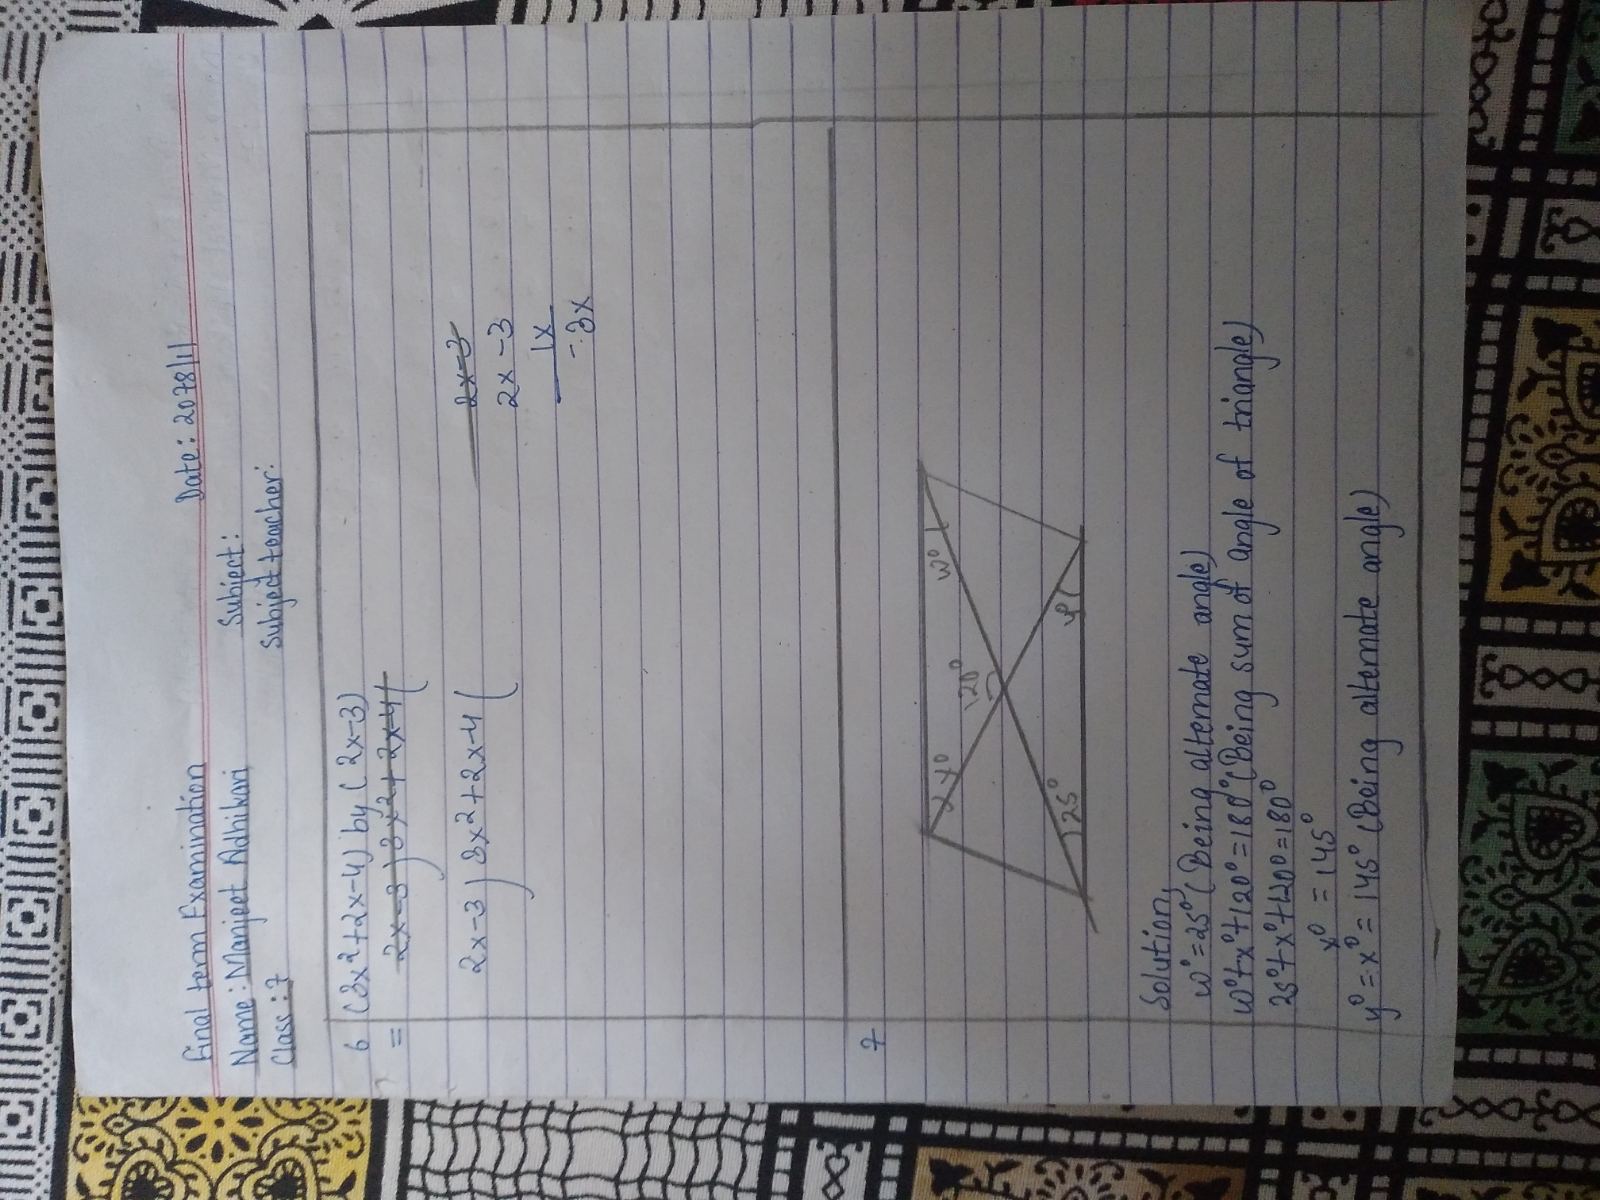 Final term Examination Date: 2078/1/
Name: Manjeet Adhikari Subject:
Class: 7 Subject teacher:
6 (3x²+2x-4) by (2x-3)
= 2x-3)3x²+2x-4(
2x-3
2x-3)3x²+2x-4( 2x-3
1x
-3x
7
x° w°
120°
25° y
Solution,
w°=25° (Being alternate angle)
w°+x°+120°=180° (Being sum of angle of triangle)
25°+x°+120°=180°
x°=145°
y°=x°=145° (Being alternate angle)